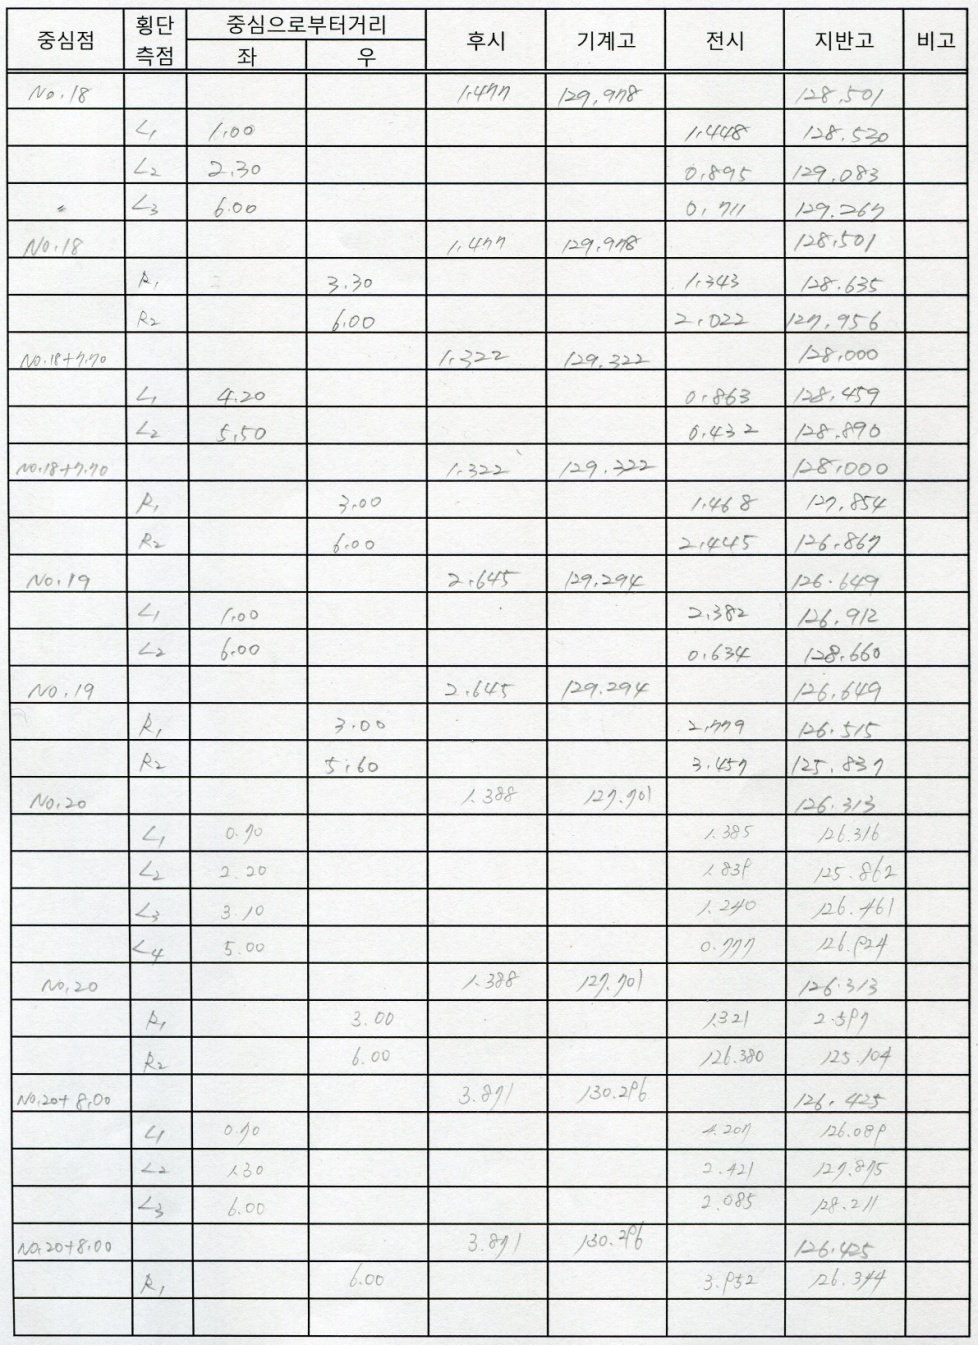 중심점 횡단측점 중심으로부터거리 후시 기계고 전시 지반고 비고
좌 우
No.18 1.477 129.978 128.501
L1 1.00 1.448 128.530
L2 2.30 0.895 129.083
〃 L3 6.00 0.711 129.267
No.18 1.477 129.978 128.501
R1 3.30 1.343 128.635
R2 6.00 2.022 127.956
No.18+7.70 1.322 129.322 128.000
L1 4.20 0.863 128.459
L2 5.50 0.432 128.890
No.18+7.70 1.322 129.322 128.000
R1 3.00 1.468 127.854
R2 6.00 2.445 126.867
No.19 2.645 129.294 126.649
L1 1.00 2.382 126.912
L2 6.00 0.634 128.660
No.19 2.645 129.294 126.649
R1 3.00 2.779 126.515
R2 5.60 3.457 125.837
No.20 1.388 127.701 126.313
L1 0.70 1.385 126.316
L2 2.20 1.839 125.862
L3 3.10 1.240 126.461
L4 5.00 0.777 126.924
No.20 1.388 127.701 126.313
R1 3.00 1.321 2.597
R2 6.00 126.380 125.104
No.20+8.00 3.871 130.296 126.425
L1 0.70 4.207 126.089
L2 1.30 2.421 127.875
L3 6.00 2.085 128.211
No.20+8.00 3.871 130.296 126.425
R1 6.00 3.952 126.344